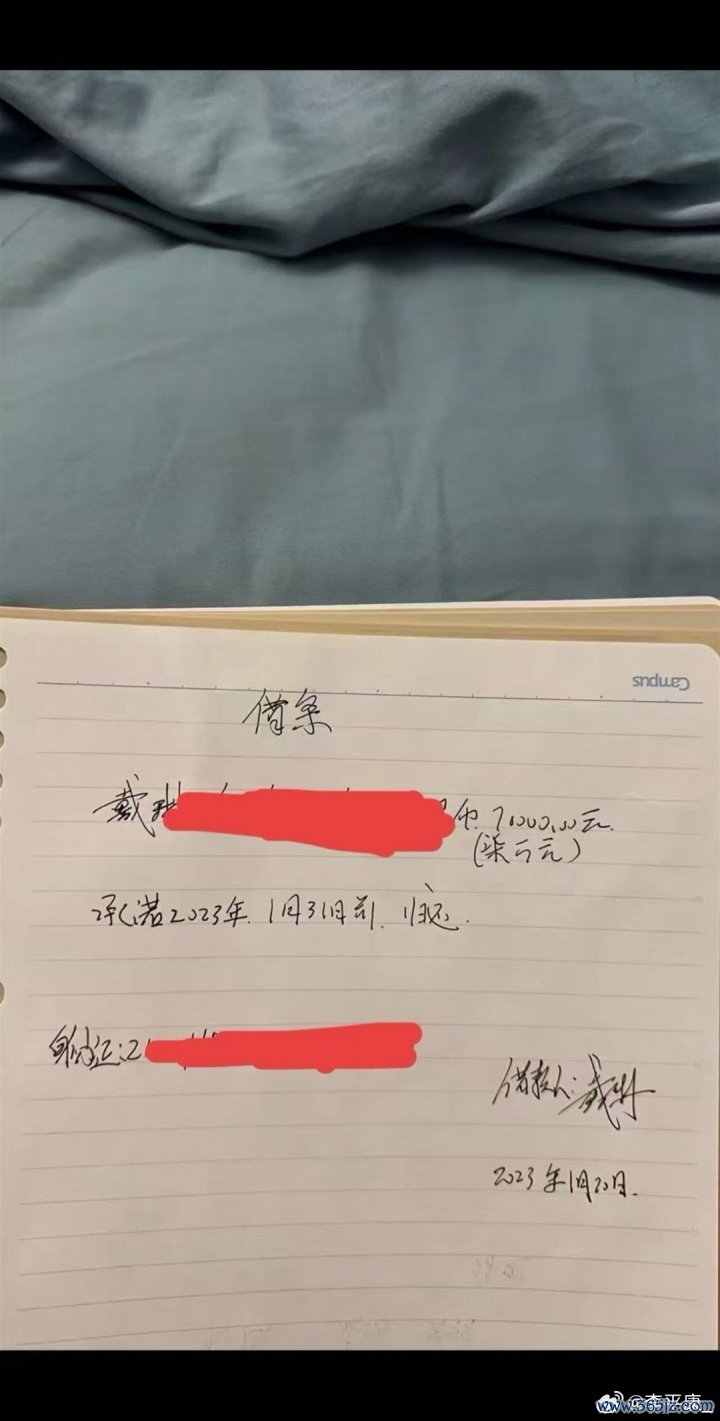 Campus
借条
戴琳 币 70000.00元.
(柒万元)
承诺2023年1月31日前归还.
身份证:2
借款人:戴琳
2023年1月20日.
@李平康_
www.365jz.com